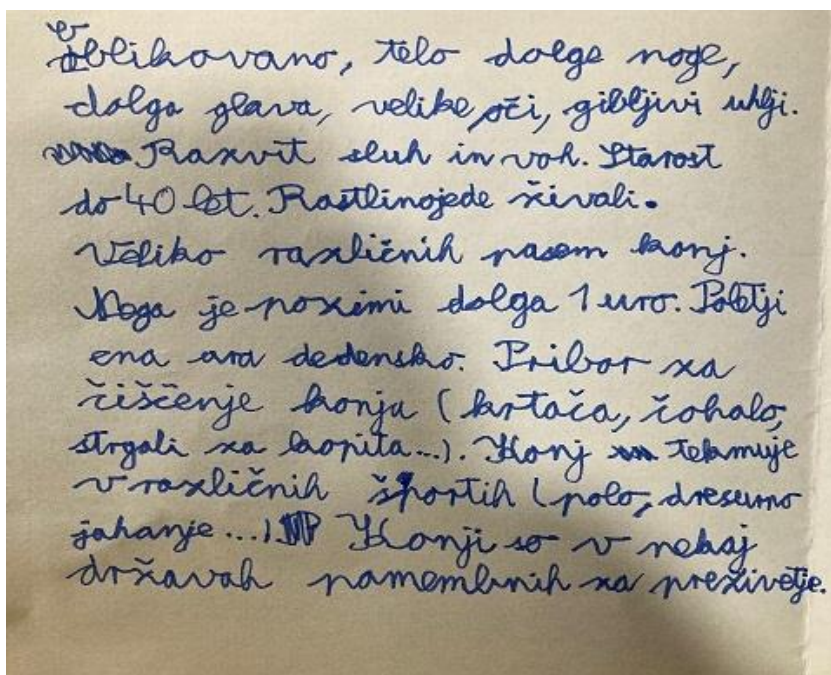 oblikovano, telo dolge noge,
dolga glava, velike oči, gibljivi uhlji.
Razvit sluh in voh. Starost
do 40 let. Rastlinojede živali.
Veliko različnih pasem konj.
Nega je pozimi dolga 1 uro. Poletji
ena ura dedensko. Pribor za
čiščenje konja (krtača, čohalo,
strgali za kopita...). Konj tekmuje
v različnih športih (polo, dresurno
jahanje...). Konji so v nekaj
državah pomembnih za preživetje.